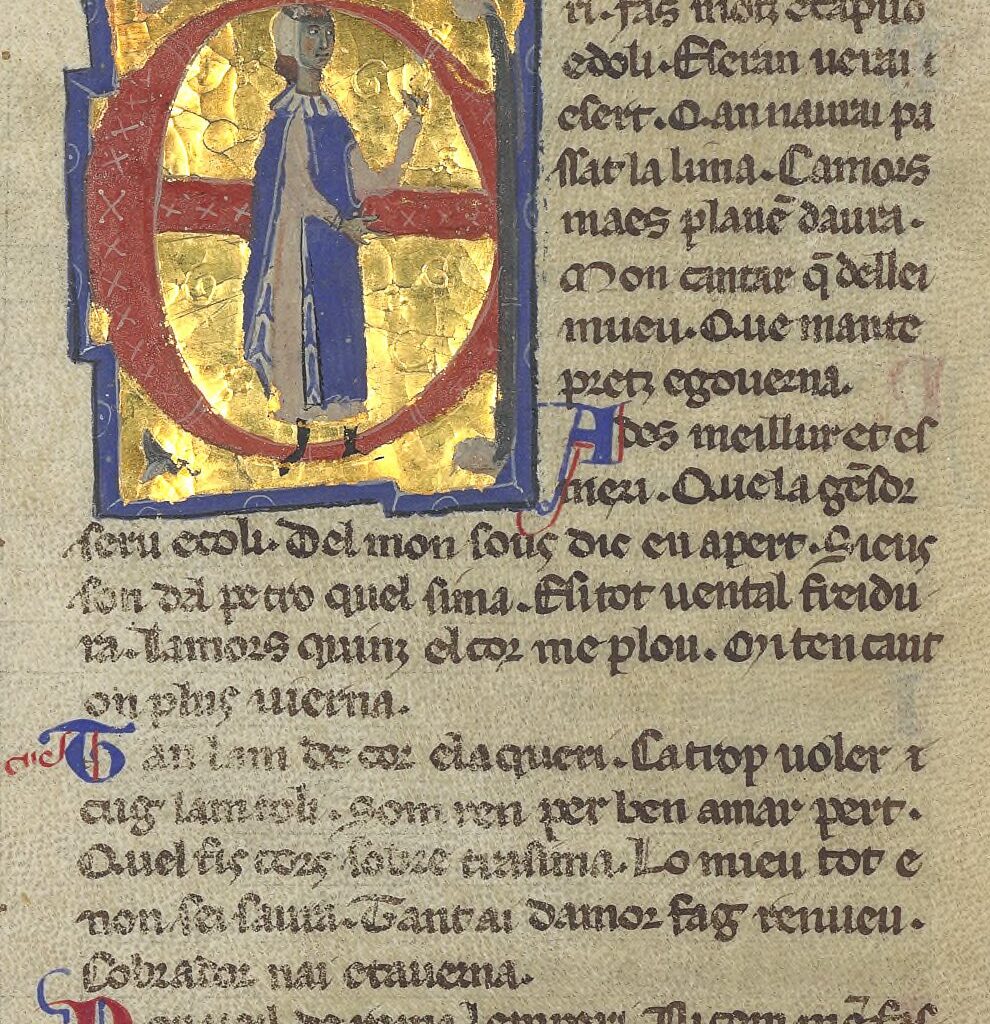 ri. fas motz ecapuo
edoli. Eseran uerai e
esert. Qan naurai pa
ssat la lima. Camors
maes planē daura.
Mon cantar q̄ dellei
mueu. Que mante
pretz egouerna.
Ades meillur et es
meri. Quela gēsor
seru ecoli. Del mon sous dic en apert. Sieus
son del pe tro quel sima. Esi tot uental freidu
ra. Lamors quinz el cor me plou. Mi ten caut
on plus uierna.
Tan lam de cor elaqueri. Catrop uoler
cug lam toli. Som ren per ben amar pert.
Quel sis cors sobre tra sima. Lo mieu tot e
non sei saura. Tant ai damor fag renueu.
Cobrador nai etauerna.